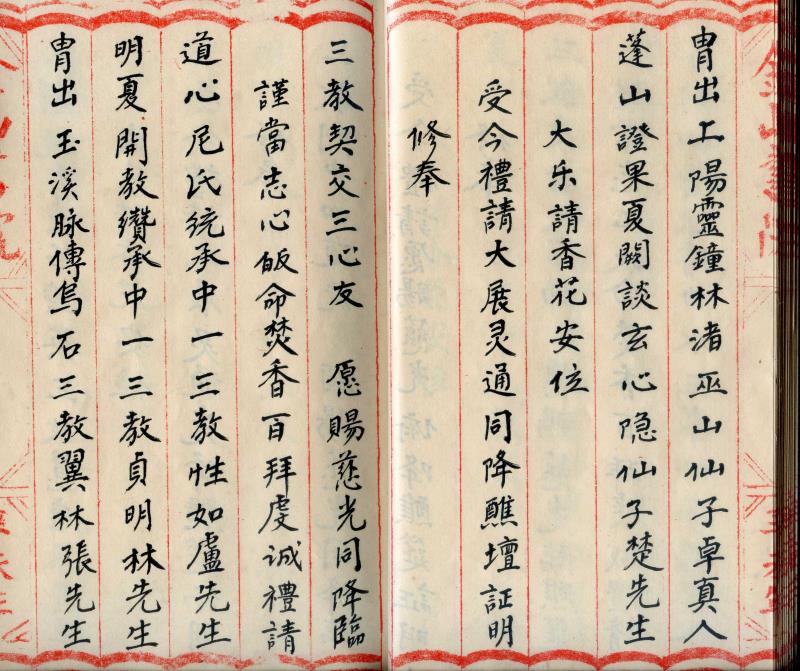 胄出工陽靈鐘林渚巫山仙子卓真人
蓬山證果夏闕談玄心隐仙子楚先生
大乐請香花安位
受今禮請大展灵通同降醮壇証明
修奉
三教契交三心友 愿賜慈光同降臨
謹當志心皈命焚香百拜虔诚禮請
道心尼氏統承中一三教性如盧先生
明夏開教纘承中一三教貞明林先生
胄出玉溪脉傳烏石三教翼林張先生